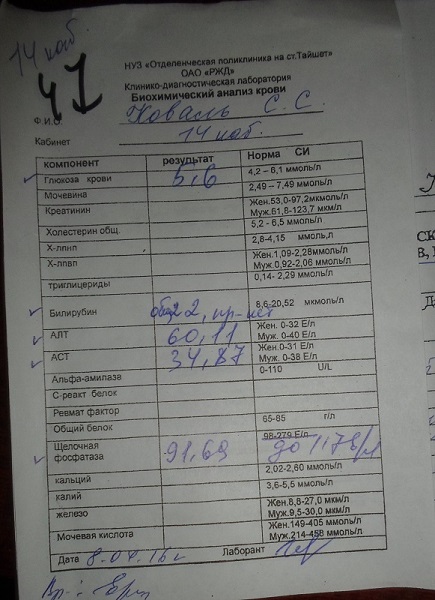 14 каб.
41
НУЗ «Отделенческая поликлиника на ст.Тайшет»
ОАО «РЖД»
Клинико-диагностическая лаборатория
Биохимический анализ крови
Ф.И.О. Коваль С. С.
Кабинет 14 каб.
компонент результат Норма СИ
Глюкоза крови 5,6 4,2 – 6,1 ммоль/л
Мочевина 2,49 – 7,49 ммоль/л
Креатинин Жен.53,0-97,2мкмоль/л
Муж.61,8-123,7 мкм/л
Холестерин общ. 5,2 - 6,5 ммоль/л
Х-лпнп 2,8-4,15 ммоль,л
Х-лпвп Жен.1,09-2,28ммоль/л
Муж.0,92-2,06 ммоль/л
триглицериды 0,14- 2,29 ммоль/л
Билирубин общ 22, пр-нет 8,6-20,52 мкмоль/л
АЛТ 60,11 Жен. 0-32 Е/л
Муж. 0-40 Е/л
АСТ 34,87 Жен.0-31 Е/л
Муж. 0-38 Е/л
Альфа-амилаза 0-110 U/L
С-реакт белок
Ревмат фактор
Общий белок 65-85 г/л
Щелочная фосфатаза 91,69 98-279 Е/л до 117 Е/л
кальций 2,02-2,60 ммоль/л
калий 3,6-5,5 ммоль/л
железо Жен.8,8-27,0 мкм/л
Муж.9,5-30,0 мкм/л
Мочевая кислота Жен.149-405 ммоль/л
Муж.214-458 ммоль/л
Дата 8.04.16г Лаборант